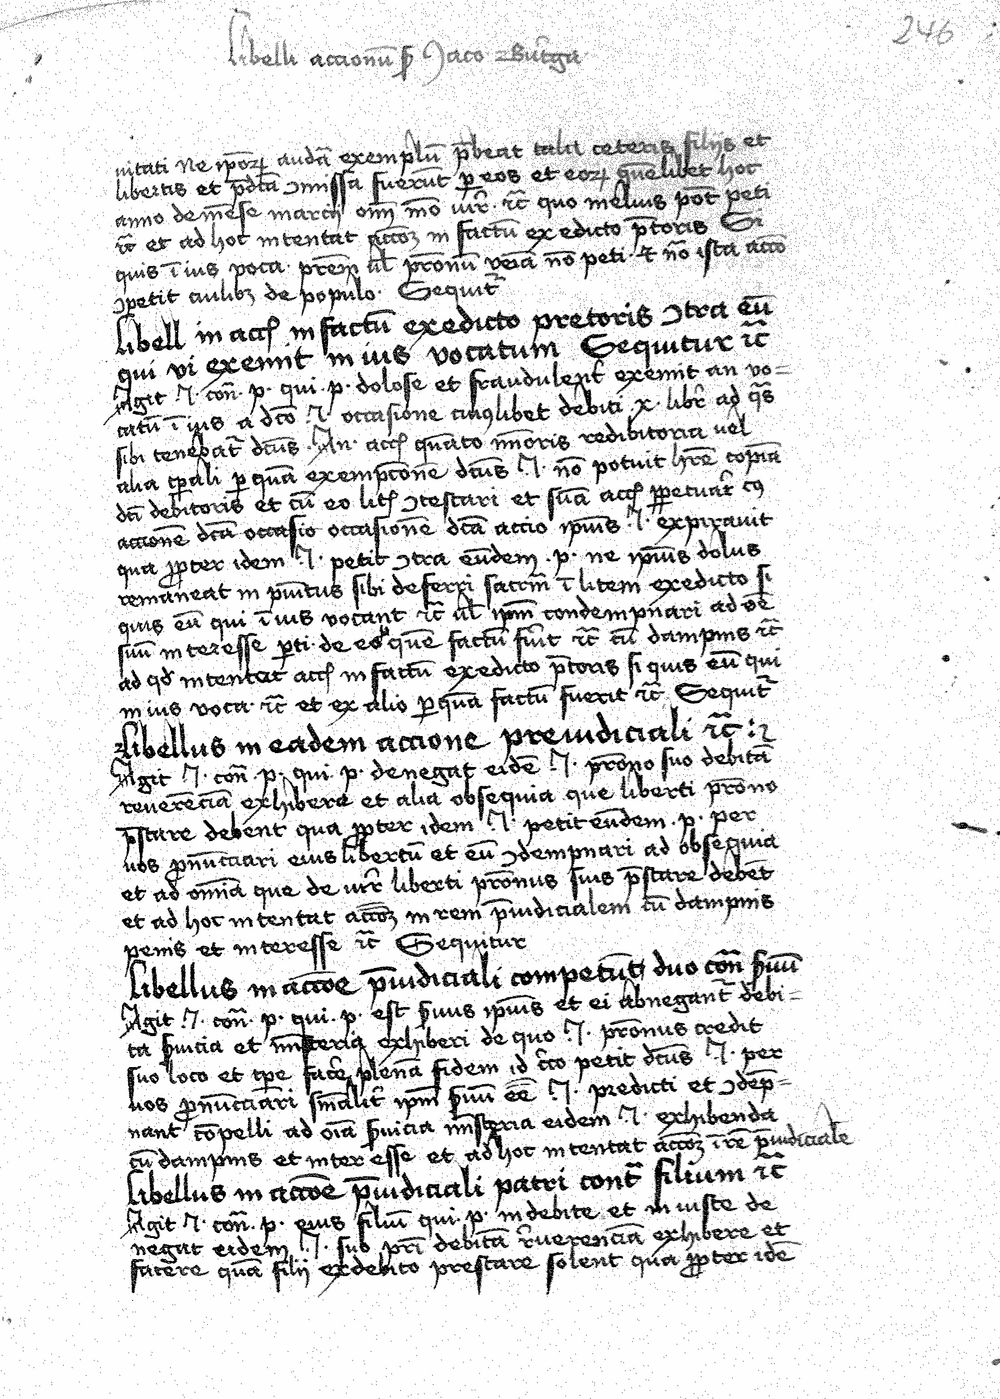 246
Libelli accionu͞ Jaco Burga
vitati Ne ip̄oꝝ audā exemplū p̄beat talia ceteris filijs et
libertis et p̄dcā ↄmissa fuerūt ꝑ eos et eoꝝ quēlibet hoc
anno de mēse marcij om̄i mō iur̄ ꝛc̄ quo melius pōt peti
ꝛc̄ et ad hoc intentat accōꝫ in factū ex edicto p̄toris Si
quis ī ius voca prēm ul̄ pronū veiā nō peti ⁊ nō ista accō
ↄpetit cuilibꝫ de populo Sequit̄
Libell in acc̄ in factū ex edicto pretoris ↄtra eū
qui vi exemit in ius vocatum Sequitur ꝛc̄
Agit J. con̄. p. qui. p. dolose et fraudulent̄ exemit an vo=
catū ī ius a dco J. occasione cuiꝰlibet debiti x libr̄ ad q̄s
sibi tenebat̄ dcūs An. acc̄ quāto mīoris redibitoria vel
alia tp̄ali ꝑ quā exempcionē dcūs J. nō potuit hr̄e copiā
dci debitoris et cū eo lit̄ ↄtestari et suā acc̄ ꝑpetuar̄ cꝰ
accionē dcā occasio occasionē dcā accio ipīus J. expirauit
qua ꝓpter idem J. petit ↄtra eūdem .p. ne ipīus dolus
remaneat impūitus sibi deferri sacrm̄ ī litem ex edicto si
quis eū qui ī ius vocant ꝛc̄ ul̄ ipm̄ condempnari ad oē
suū interesse ꝑti de eo quē factū fūit ꝛc̄ cū dampnis ꝛc̄
ad qd̄ intentat acc̄ in factū ex edicto p̄toris si quis eū qui
in ius voca ꝛc̄ et ex alio ꝑ quā factū fuerit ꝛc̄ Sequit̄
Libellus in eadem accione preiudiciali ꝛc̄
Agit J. con̄. p. qui. p. denegat eidē J. prōno suo debitā
reuerēciā exhibere et alia obsequia que liberti prōno
p̄stare debent qua ꝓpter idem J. petit eūdem .p. per
uos ꝓnūcciari eius libertū et eū ↄdempnari ad obsequia
et ad omīa que de iur̄ liberti prōnus suis p̄stare debēt
et ad hoc intentat accōꝫ in rem p̄iudicialem cū dampnis
penis et interesse ꝛc̄ Sequitur
Libellus in accōe p̄iudiciali competūti duo con̄ ẜuū
Agit J. con̄. p. qui. p. est ẜuus ipīus et ei abnegant̄ debi=
ta ẜuicia et mīsteria exhiberi de quo J. prōnus credit
suo loco et tp̄e facr̄e plenā fidem id cc̄o petit dcūs J. per
uos ꝓnūcciari sīnaliť ipm̄ ẜuū eē J. predicti et ↄdep̄=
nant cōpelli ad oīa ẜuicia mīsteria eidem J. exhibenda
cū dampnis et interesse et ad hoc intentat accōꝫ ī rē p̄iudiciale
Libellus in accōe p̄iudiciali patri cont̄ filium ꝛc̄
Agit J. con̄. p. eius filiū qui. p. indebite et iniuste de
negat eidem J. suo prī debitā r̄uerenciā exhibere et
facere quā filij ex debito prestare solent qua ꝓpter idē